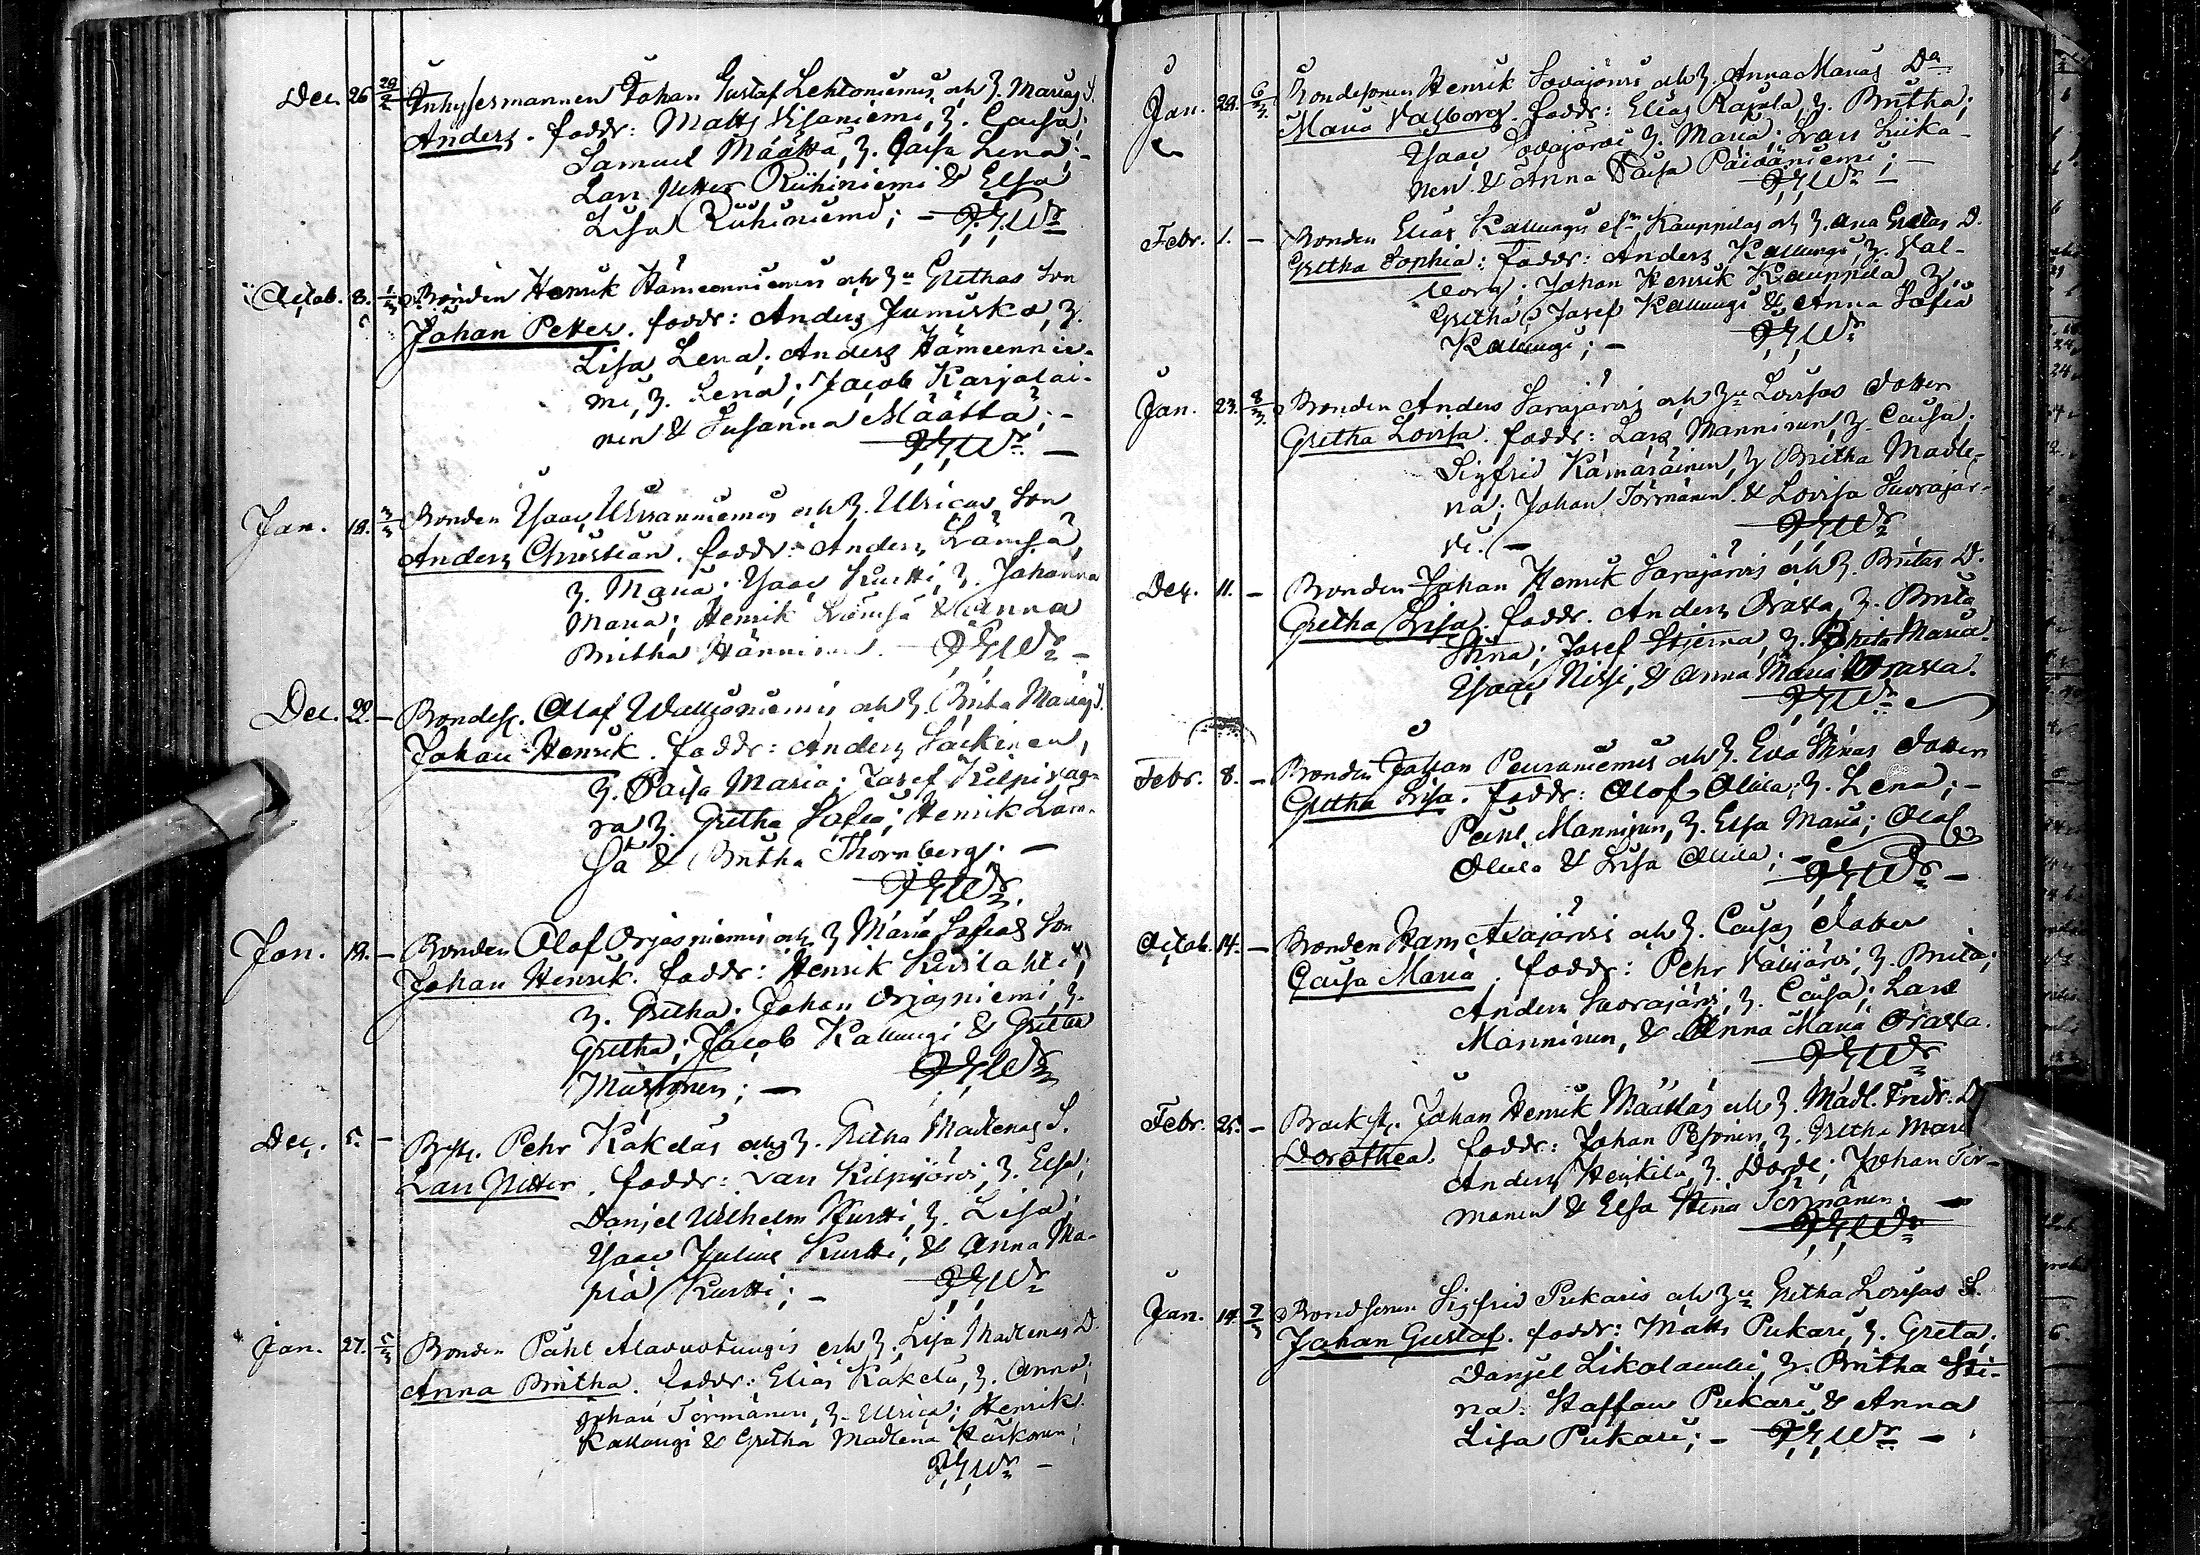 Dec. 26 29/2 Inhysesmannen Johan Gustaf Lehtoniemis och h. Marias S.
Anders. faddr: Matts Visaniemi, h. Caisa;
Samuel Määttä, h. Caisa Lena;
Lars Petter Riihiniemi & Elsa
Lisa Riihiniemi; -
Octob. 8. 1/3 Bonden Henrik Hämeenniemis och hu Grethas Son
Johan Petter. faddr: Anders Jumisko, h.
Lisa Lena; Anders Hämeennie-
mi, h. Lena; Jacob Karjalai-
nen & Susanna Määttä; -
Jan. 18. 3/3 Bonden Isaac Ulricas Son
Anders Christian. faddr: Anders Lämsä,
h. Maria; Isaac Kurtti, h. Johanna
Maria; Henrik Lämsä & Anna
Britha Hänninen
Dec. 22. - Bondes. Olof och h. Brita Marias S.
Johan Henrik. faddr: Anders Säckinen,
h. Caisa Maria; Josef Kilpivaa-
ra h. Gretha Sofia; Henrik Läm-
sä & Britha Thornberg. -
Jan. 19. - Bonden Olof Orjasniemis och h. Maria Sofias Son
Johan Henrik. faddr: Henrik Kivilahti,
h. Gretha; Johan Orjasniemi, h.
Gretha; Jacob Kallungi & Gretha
Mustonen; -
Dec. 5. - Pehr Käkeläs och h. Gretha Madlenas S.
Lars Petter. faddr: Lars Kilpijärvi, h. Elsa;
Daniel Wilhelm Kurtti, h. Lisa;
Isaac Julius Kurtti, & Anna Ma-
ria Kurtti; -
Jan. 27. 5/3 Bonden Påhl Alavuotungis och h. Lisa Madlenas D.
Anna Britha. faddr: Elias Käkelä, h. Anna;
Johan Törmänen, h. Ulrica; Henrik
Kallungi & Gretha Madlena Karkonen;
Jan. 28. 6/3 Bondesonen Henrik och h. Anna Marias Dr
Maria Valborg. faddr: Elias Rajala, h. Britha;
Isaac h. Maria; Lars Liika-
nen & Anna Caisa Päiväniemi; -
Febr. 1. - Bonden Elias Kallungis el. Kauppilas och h. Ana Gretas D.
Gretha Sophia: faddr: Anders Kallungi, h. Val-
borg; Johan Henrik Kauppila h.
Gretha; Josef Kallungi & Anna Sofia
Kallungi; -
Jan. 23. 8/3 Bonden Anders Sarajärvis och hu Lovisas dotter
Gretha Lovisa. faddr: Lars Manninen, h. Caisa;
Sigfrid Kämäräinen, h Britha Madle-
na; Johan Törmänen & Lovisa Suorajär-
vi. -
Dec. 11. - Bonden Johan Henrik Sarajärvis och h. Britas D.
Gretha Lisa. faddr. Anders Orava, h. Brita
Stina; Josef Stjerna, h. Brita Maria;
Isaac Nissi, & Anna Maria Orava.
Febr. 8. - Bonden Johan Peuraniemis och h. Eva Stinas dotter
Gretha Lisa. faddr: Olof Ollila, h. Lena; -
Pehl Manninen, h. Elsa Maria; Olof
Ollila & Lisa Ollila; -
Octob. 14. - Bonden Hans Avajärvis och h. Caisas dotter
Caisa Maria. faddr: Pehr h. Brita;
Anders Suorajärvi, h. Caisa; Lars
Manninen, & Anna Maria Orava.
Febr. 25. - Johan Henrik Määttäs och h. Madl. Fredr. D
Dorothea. faddr: Johan Pesonen, h. Gretha Mari
Anders Heikkilä, h. Dorde; Johan Tör-
mänen & Elsa Stina Törmänen. -
Jan. 14. 9/3 Bondsonen Sigfrid Pukaris och hu Gretha Lovisas S.
Johan Gustaf. faddr: Matts Pukari, h. Greta;
Danjel h. Britha Sti-
na. Staffan Pukari & Anna
Lisa Pukari; -